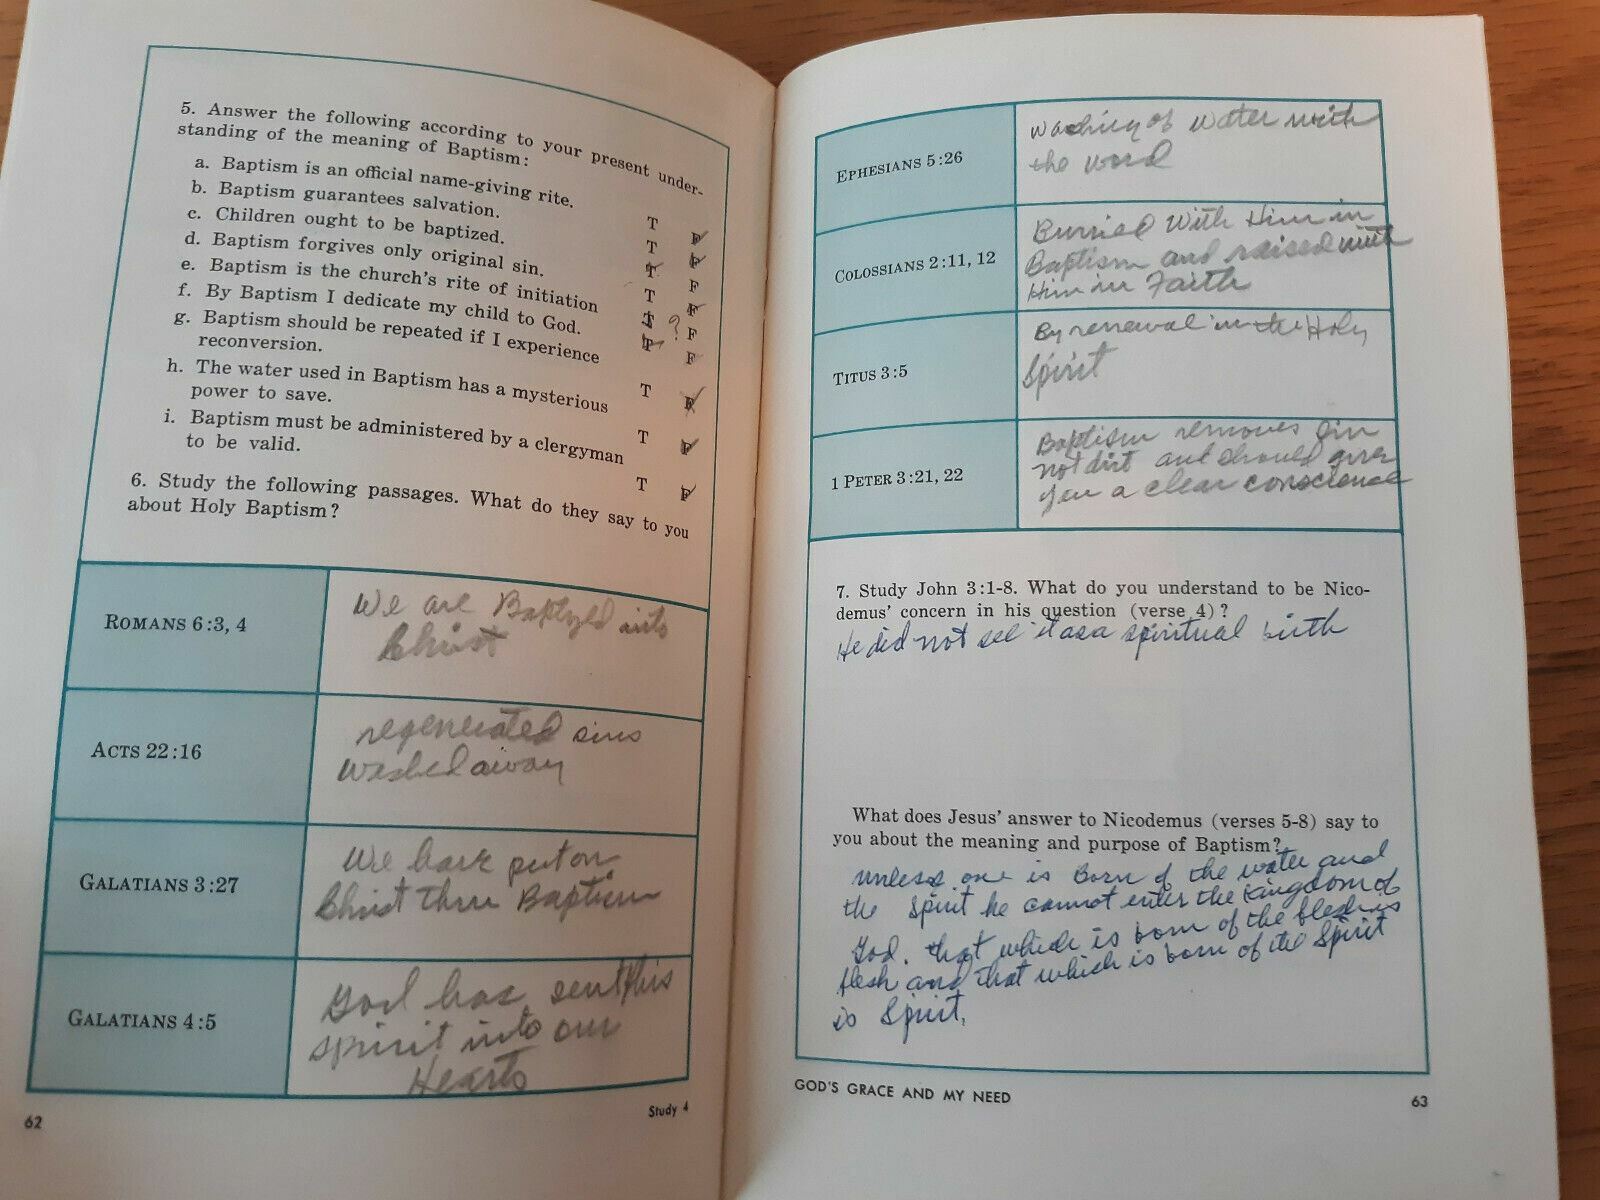 5. Answer the following according to your present under-
standing of the meaning of Baptism:
a. Baptism is an official name-giving rite. T F
b. Baptism guarantees salvation. T F
c. Children ought to be baptized. T F
d. Baptism forgives only original sin. T F
e. Baptism is the church's rite of initiation T ? F
f. By Baptism I dedicate my child to God. T F
g. Baptism should be repeated if I experience
reconversion. T F
h. The water used in Baptism has a mysterious
power to save. T F
i. Baptism must be administered by a clergyman
to be valid. T F
6. Study the following passages. What do they say to you
about Holy Baptism?
ROMANS 6:3, 4
We are Baptyzed into
Christ
ACTS 22:16
regenerated sins
washed away
GALATIANS 3:27
We have put on
Christ thru Baptism
GALATIANS 4:5
God has sent this
spirit into our
Hearts
62
Study 4
EPHESIANS 5:26
washing of water with
the word
COLOSSIANS 2:11, 12
Burried With Him in
Baptism and raised with
Him in Faith
TITUS 3:5
By renewal in the Holy
Spirit
1 PETER 3:21, 22
Baptism removes sin
not dirt and should give
you a clear conscience
7. Study John 3:1-8. What do you understand to be Nico-
demus' concern in his question (verse 4)?
He did not see it as a spiritual birth
What does Jesus' answer to Nicodemus (verses 5-8) say to
you about the meaning and purpose of Baptism?
unless one is Born of the water and
the Spirit he cannot enter the Kingdom of
God. that which is born of the flesh is
flesh and that which is born of the Spirit
is Spirit.
GOD'S GRACE AND MY NEED
63